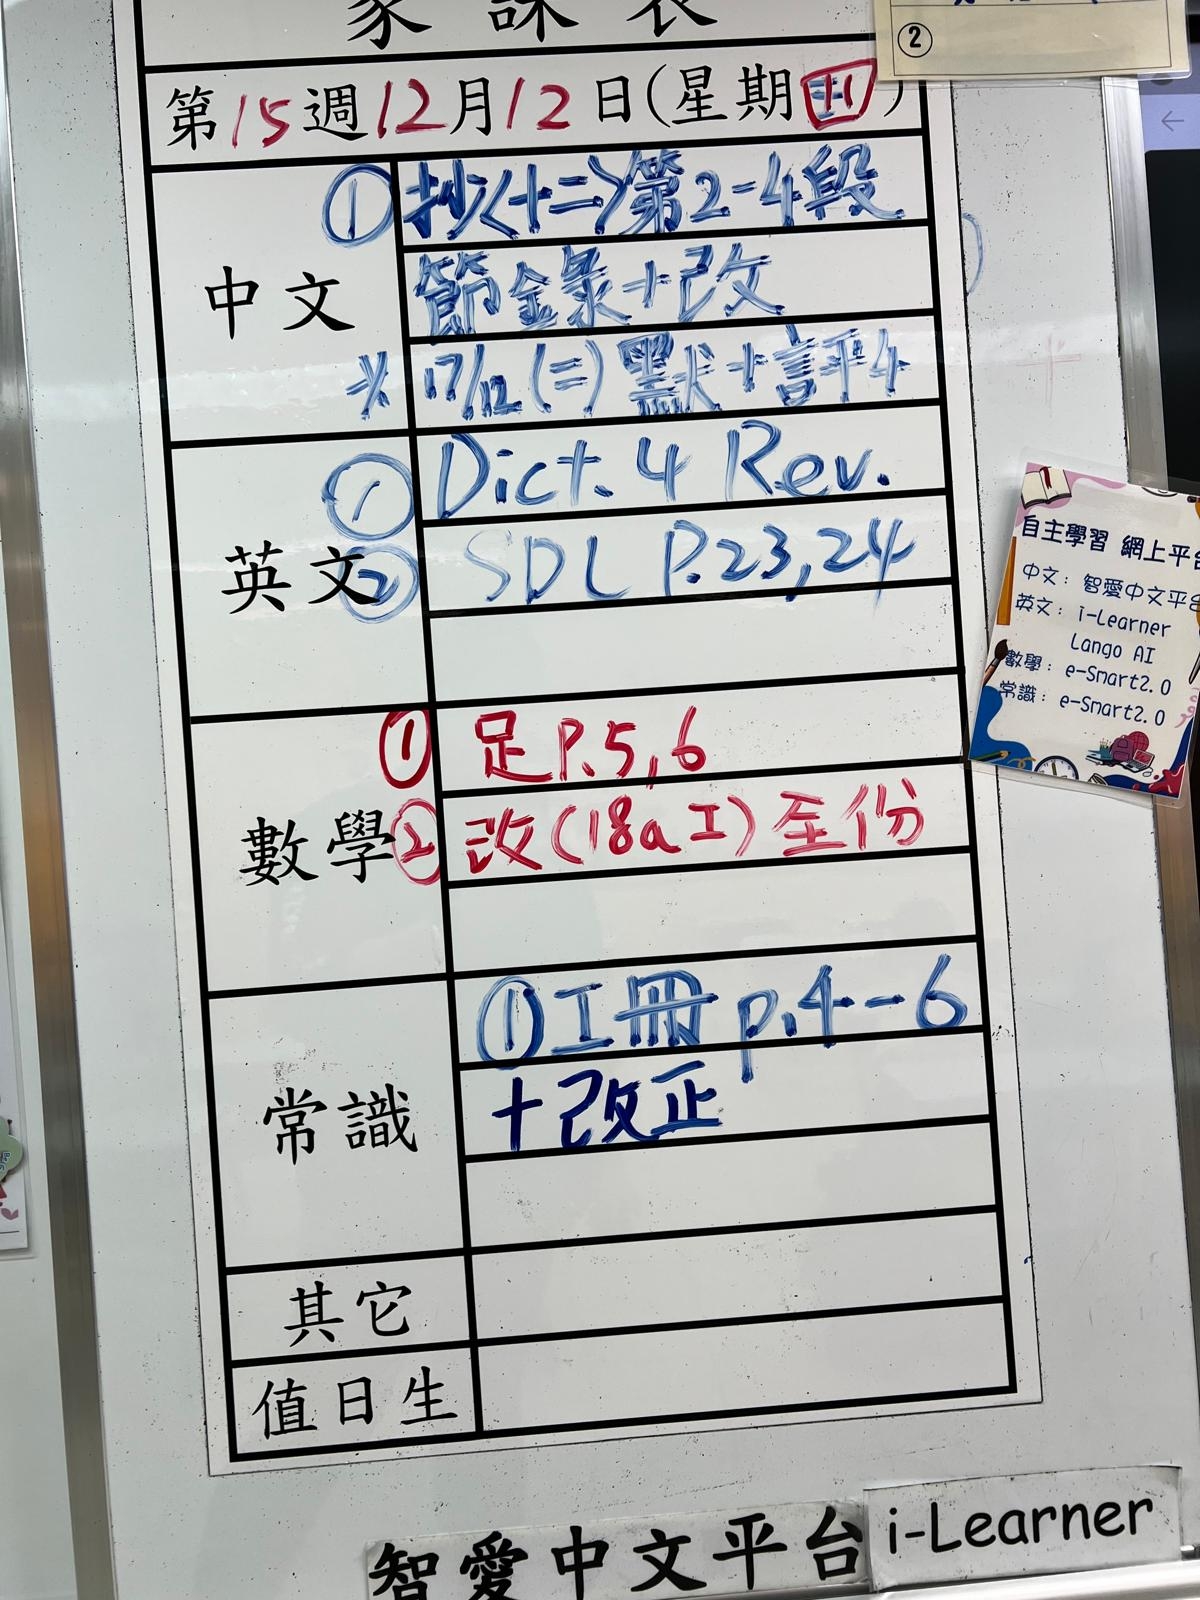 家課表
②
第15週12月12日(星期五)
中文
① 抄〈十二〉第2-4段
節錄+改
* 17/12(二)默+評4
英文
① Dict. 4 Rev.
② SDL P.23,24
數學
① 足P.5,6
② 改(18a工)全份
常識
①工冊 p.4-6
+改正
其它
值日生
自主學習 網上平台
中文：智愛中文平台
英文：i-Learner
Lango AI
數學：e-Smart2.0
常識：e-Smart2.0
智愛中文平台
i-Learner